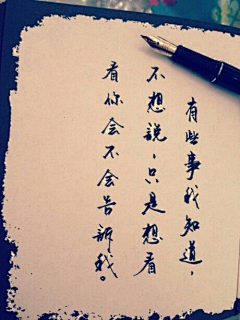 有些事我知道，
不想說，只是想看
看你会不会告訴我。